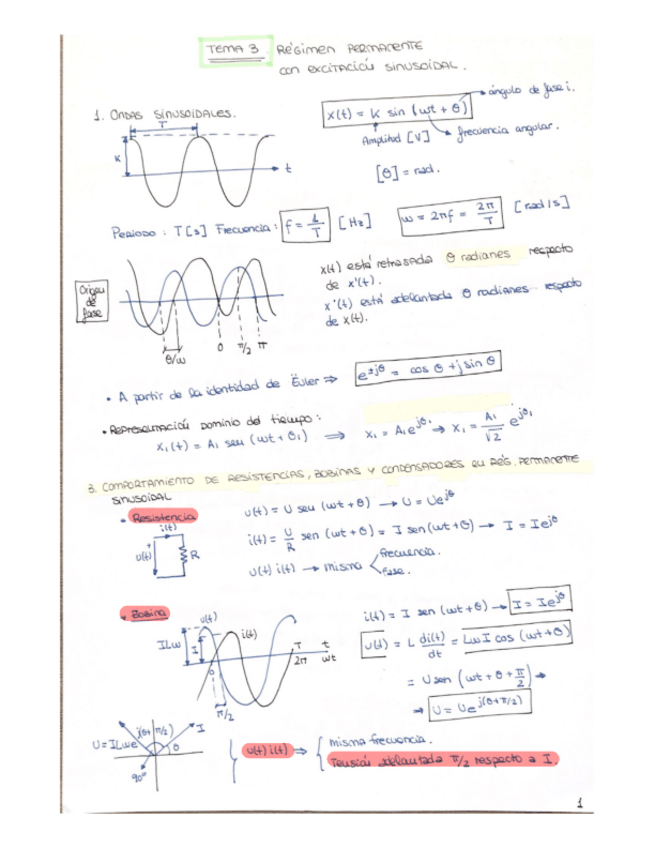 TEMA 3. RÉGIMEN PERMANENTE
con EXCITACIÓN SINUSOIDAL.
1. ONDAS SINUSOIDALES.
x(t) = K sin (ωt + θ)
ángulo de fase i.
Amplitud [V]
frecuencia angular.
T
K
t
[θ] = rad.
Periodo: T[s] Frecuencia: f = 1/T [Hz]
ω = 2πf = 2π/T [rad/s]
Origen de fase
θ/ω
0 π/2 π
x(t) está retrasada θ radianes respecto
de x'(t).
x'(t) está adelantada θ radianes respecto
de x(t).
• A partir de la identidad de Euler ⇒ e^±jθ = cos θ + j sin θ
• Representación dominio del tiempo:
x₁(t) = A₁ sen (ωt + θ₁) ⇒ x₁ = A₁e^jθ₁ → x₁ = A₁/√2 e^jθ₁
3. COMPORTAMIENTO DE RESISTENCIAS, BOBINAS Y CONDENSADORES en RÉG. PERMANENTE
SINUSOIDAL
• Resistencia
i(t)
u(t)
+
R
u(t) = U sen (ωt + θ) → U = Ue^jθ
i(t) = U/R sen (ωt + θ) = I sen (ωt + θ) → I = Ie^jθ
u(t) i(t) → misma
frecuencia.
fase.
• Bobina
u(t)
i(t)
ILω
I
0
T
2π
t
ωt
π/2
i(t) = I sen (ωt + θ) → I = Ie^jθ
u(t) = L di(t)/dt = LωI cos (ωt + θ)
= U sen (ωt + θ + π/2) →
→ U = Ue^j(θ+π/2)
U = ILωe
j(θ + π/2)
I
θ
90°
u(t) i(t) ⇒
misma frecuencia.
Tensión adelantada π/2 respecto a I.
1